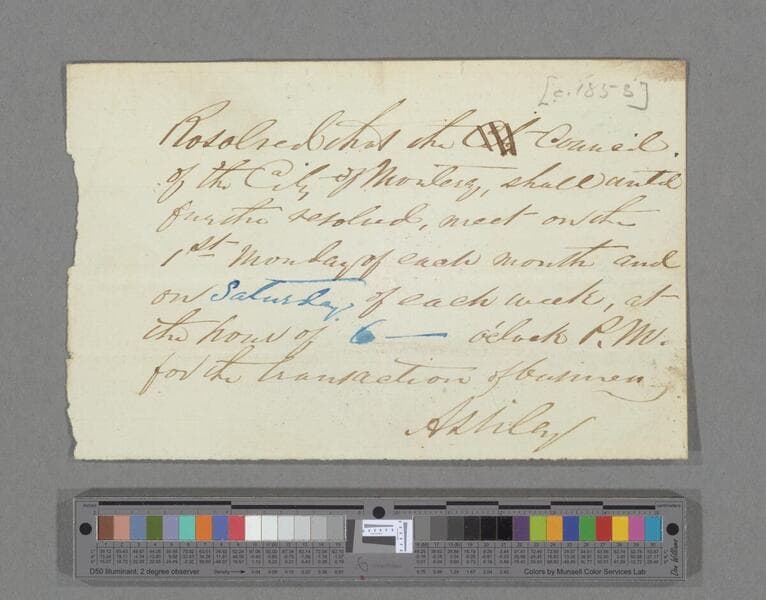 [c. 1853]
Resolved that the Council
of the City of Monterey, shall until
further resolved, meet on the
1st Monday of each month and
on Saturday of each week, at
the hour of 6 — o'clock P.M.
for the transaction of business
Ashley
D50 Illuminant, 2 degree observer
Density
Colors by Munsell Color Services Lab